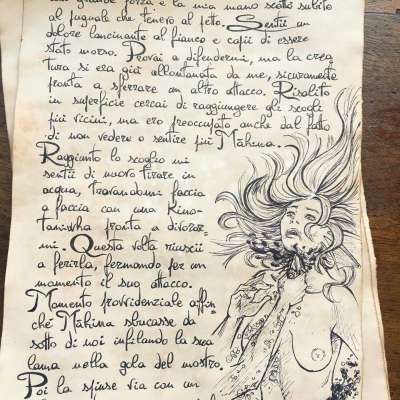 con grande forza e la mia mano scattò subito
al pugnale che tenevo al petto. Sentii un
dolore lancinante al fianco e capii di essere
stato morso. Provai a difendermi, ma la crea
tura si era già allontanata da me, sicuramente
pronta a sferrare un altro attacco. Risalito
in superficie cercai di raggiungere gli scogli
più vicini, ma ero preoccupato anche dal fatto
di non vedere o sentire più Māhina.
Raggiunto lo scoglio mi
sentii di nuovo tirare in
acqua, trovandomi faccia
a faccia con una Kino-
Taniwha pronta a divorar-
mi. Questa volta riuscii
a ferirla, fermando per un
momento il suo attacco.
Momento provvidenziale affin-
ché Māhina sbucasse da
sotto di noi infilando la sua
lama nella gola del mostro.
Poi la spinse via con un